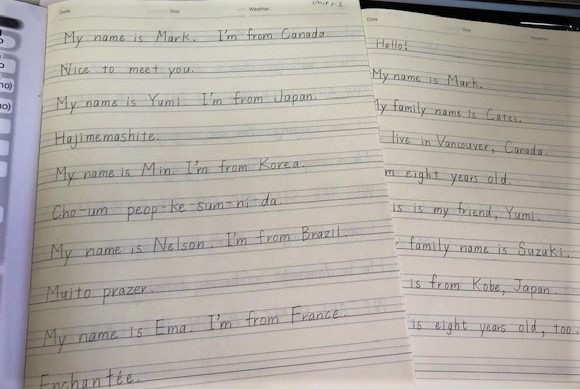 Date Day Weather
Unit 1-2
My name is Mark. I'm from Canada.
Nice to meet you.
My name is Yumi. I'm from Japan.
Hajimemashite.
My name is Min. I'm from Korea.
Cho-um peop-ke-sum-ni-da.
My name is Nelson. I'm from Brazil.
Muito prazer.
My name is Ema. I'm from France.
Enchantée.
Date Day Weather
Hello!
My name is Mark.
My family name is Cates.
live in Vancouver, Canada.
eight years old.
is my friend, Yumi.
family name is Suzuki.
is from Kobe, Japan.
is eight years old, too.